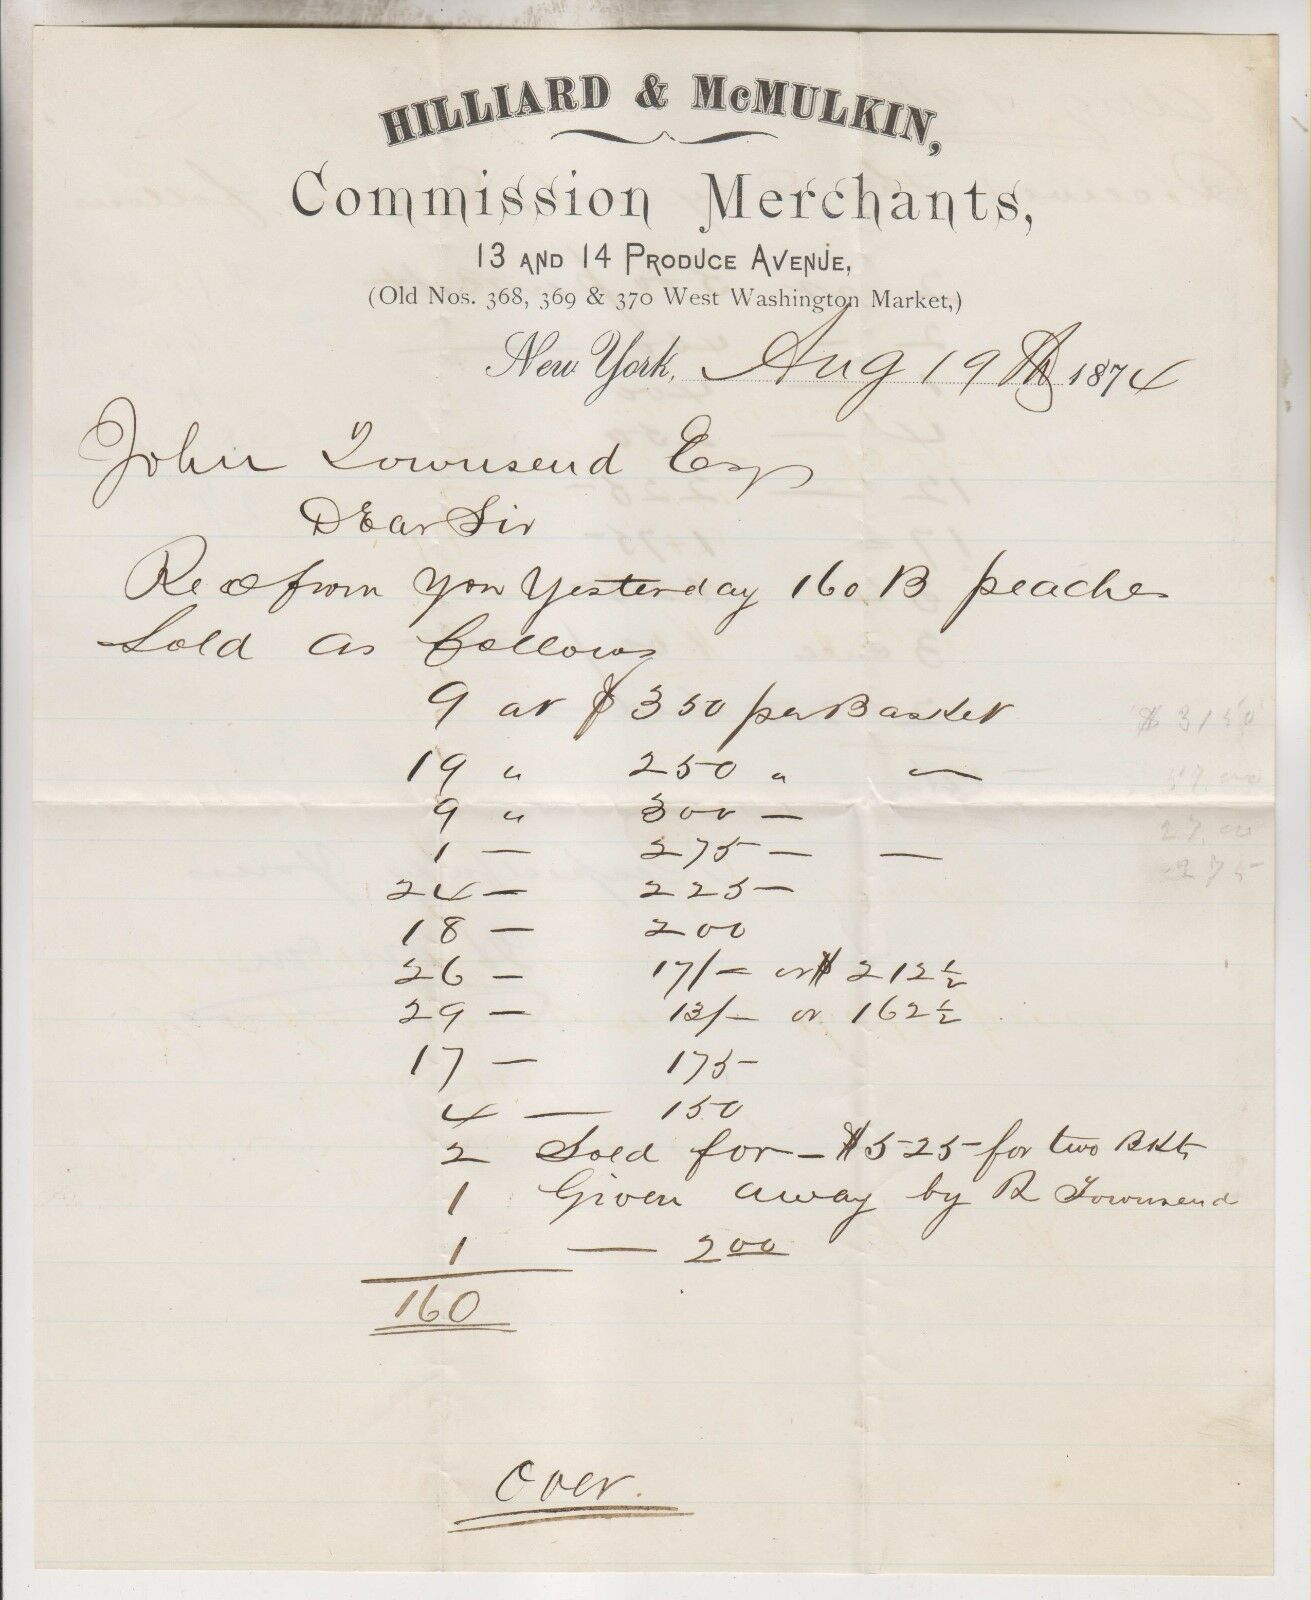 HILLIARD & McMULKIN,
Commission Merchants,
13 AND 14 PRODUCE AVENUE,
(Old Nos. 368, 369 & 370 West Washington Market,)
New York, Aug 19th 1874
John Townsend Esq
Dear Sir
Recd from you Yesterday 160 B peaches
Sold as follows
9 at $350 per Basket $3150
19 " 250 " — 47.00
9 " 300 — 27.00
1 — 275 — — 275
24 — 225 —
18 — 200
26 — 17/— or $212½
29 — 13/— or 162½
17 — 175
4 — 150
2 Sold for — $525 for two Bkts
1 Given away by R Townsend
1 — 200
160
Over.